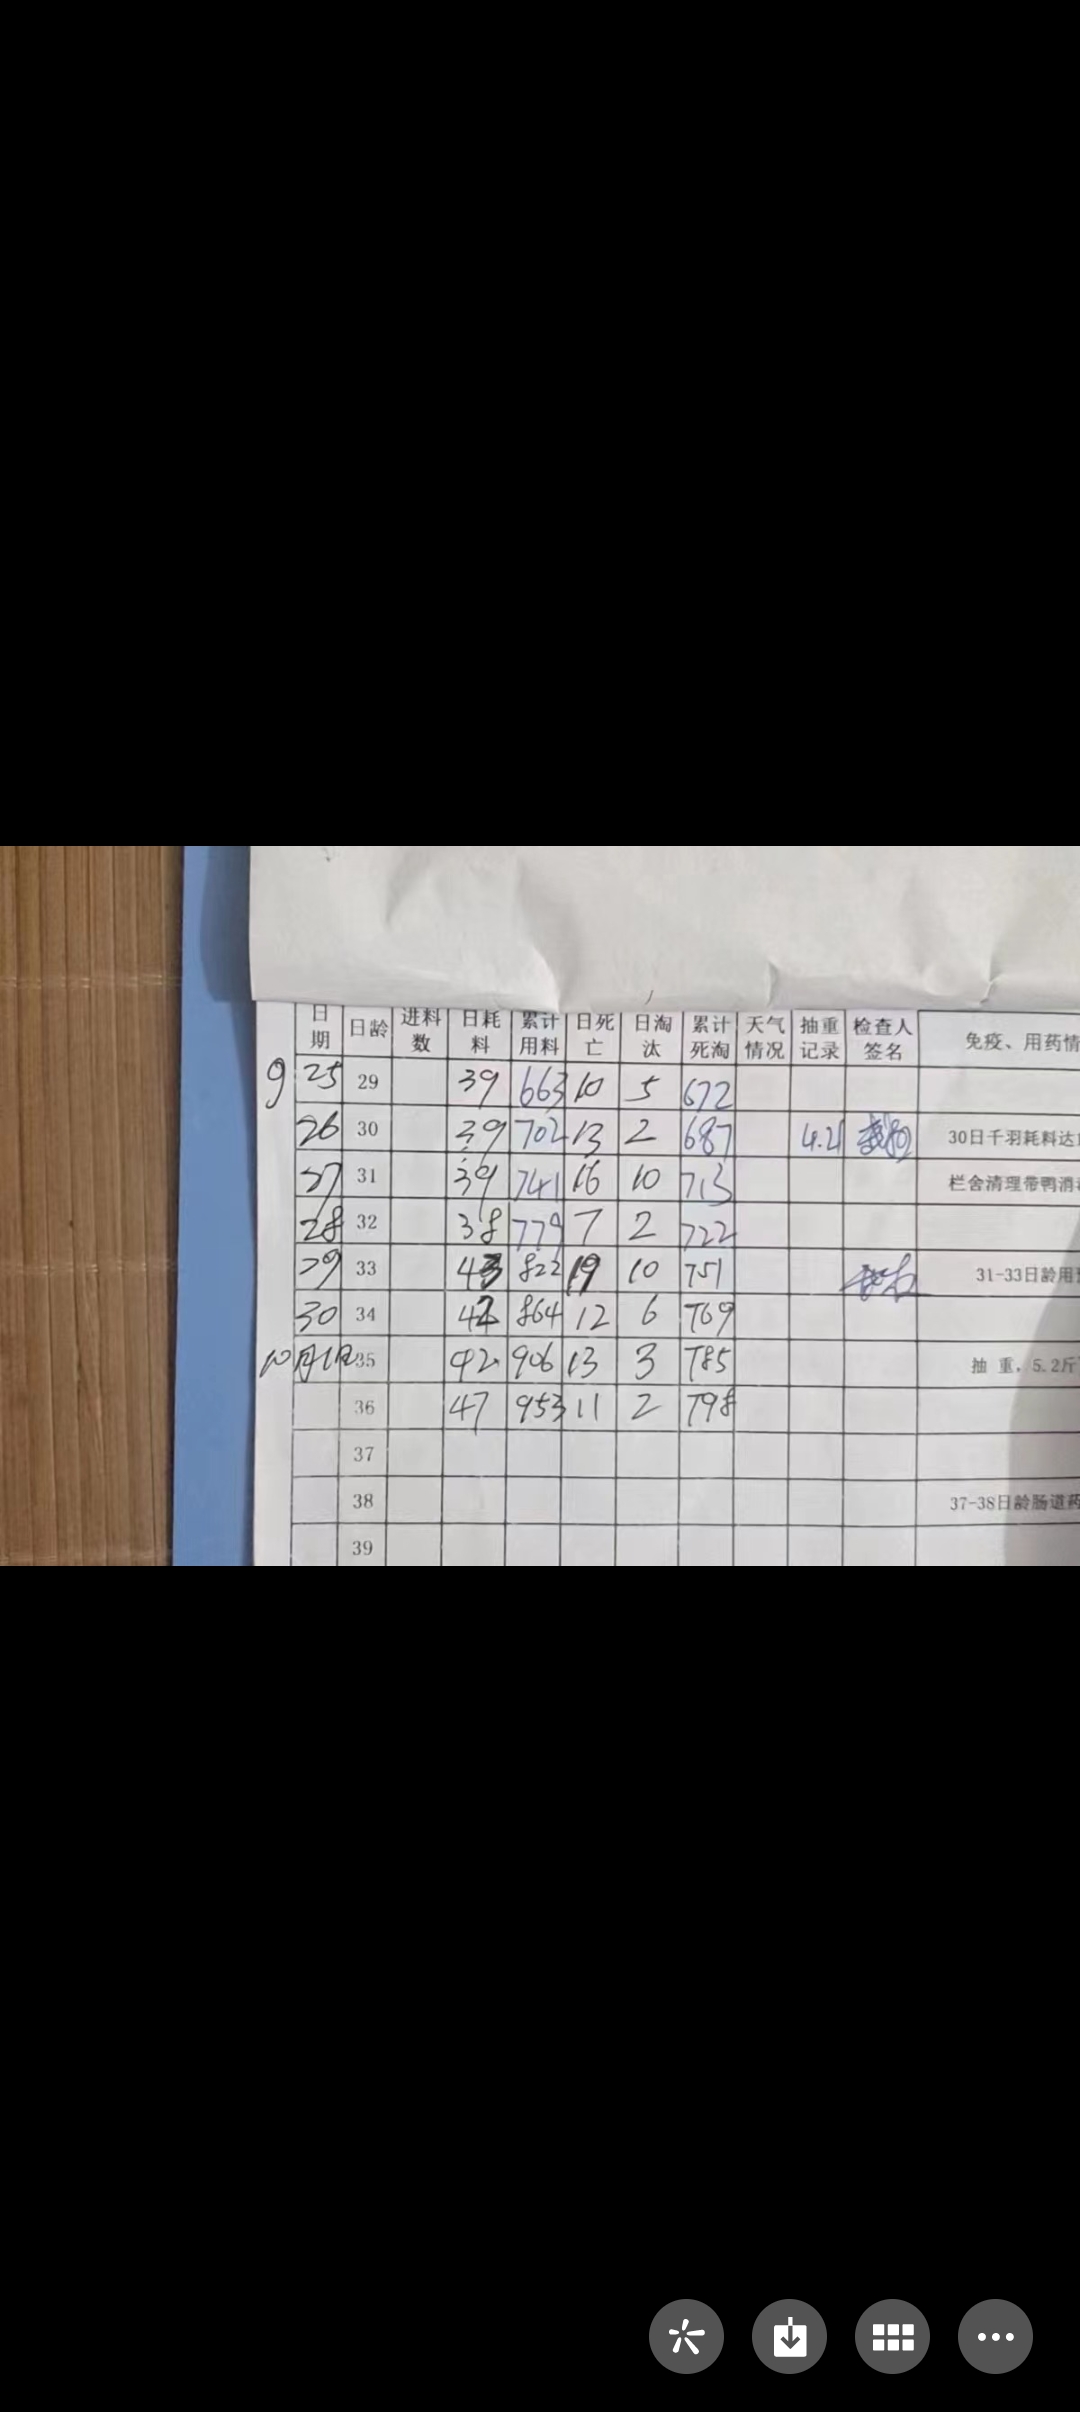 日期 日龄 进料数 日耗料 累计用料 日死亡 日淘汰 累计死淘 天气情况 抽重记录 检查人签名 免疫、用药情
9 25 29 39 663 10 5 672
26 30 39 702 13 2 687 4.21 30日千羽耗料达
27 31 39 741 16 10 713 栏舍清理带鸭消
28 32 38 779 7 2 722
29 33 43 822 19 10 751 31-33日龄用
30 34 42 864 12 6 769
10月1日 35 42 906 13 3 785 抽重，5.2斤
36 47 953 11 2 798
37
38 37-38日龄肠道药
39